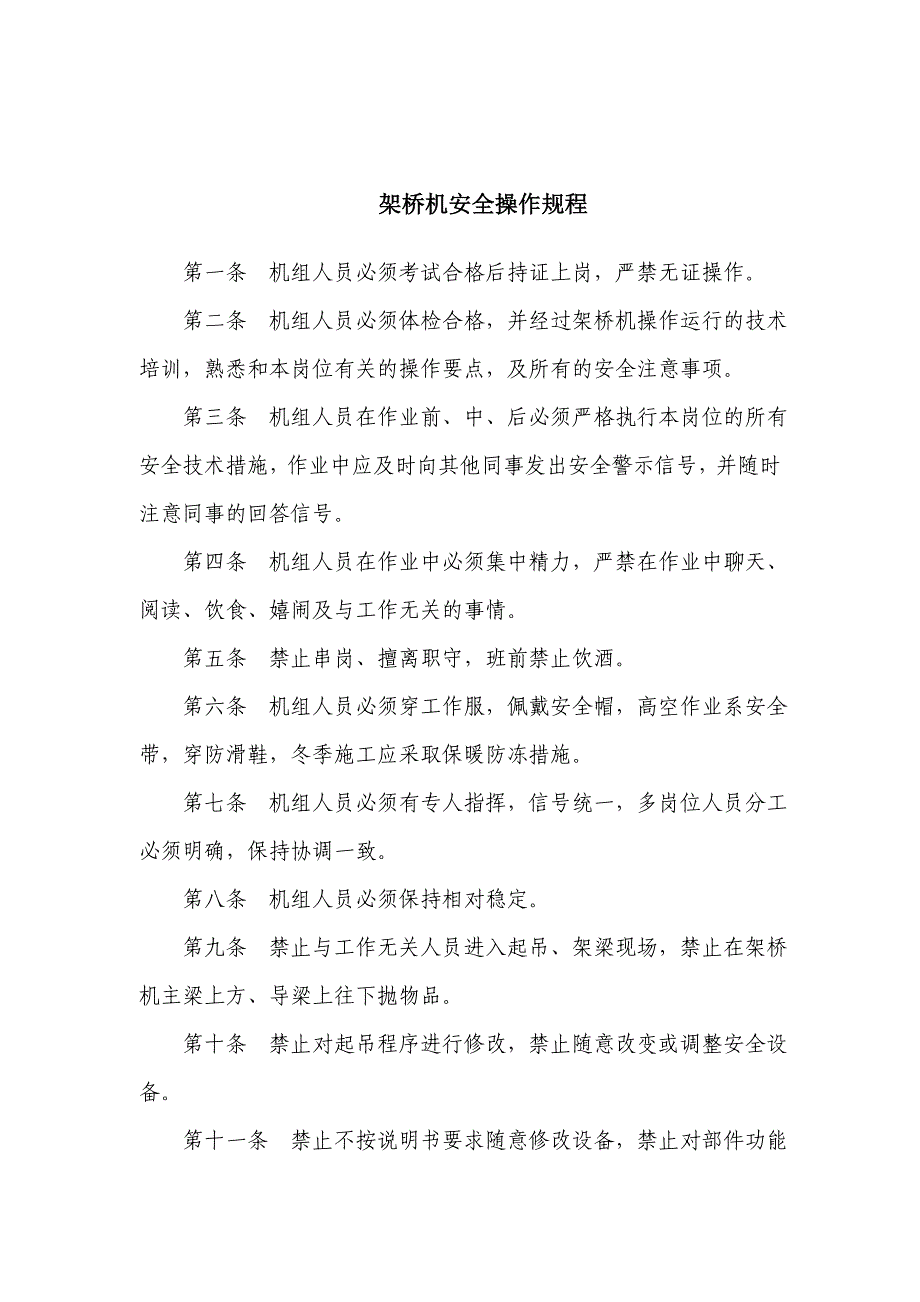 架桥机安全操作规程
第一条　机组人员必须考试合格后持证上岗，严禁无证操作。
第二条　机组人员必须体检合格，并经过架桥机操作运行的技术
培训，熟悉和本岗位有关的操作要点，及所有的安全注意事项。
第三条　机组人员在作业前、中、后必须严格执行本岗位的所有
安全技术措施，作业中应及时向其他同事发出安全警示信号，并随时
注意同事的回答信号。
第四条　机组人员在作业中必须集中精力，严禁在作业中聊天、
阅读、饮食、嬉闹及与工作无关的事情。
第五条　禁止串岗、擅离职守，班前禁止饮酒。
第六条　机组人员必须穿工作服，佩戴安全帽，高空作业系安全
带，穿防滑鞋，冬季施工应采取保暖防冻措施。
第七条　机组人员必须有专人指挥，信号统一，多岗位人员分工
必须明确，保持协调一致。
第八条　机组人员必须保持相对稳定。
第九条　禁止与工作无关人员进入起吊、架梁现场，禁止在架桥
机主梁上方、导梁上往下抛物品。
第十条　禁止对起吊程序进行修改，禁止随意改变或调整安全设
备。
第十一条　禁止不按说明书要求随意修改设备，禁止对部件功能